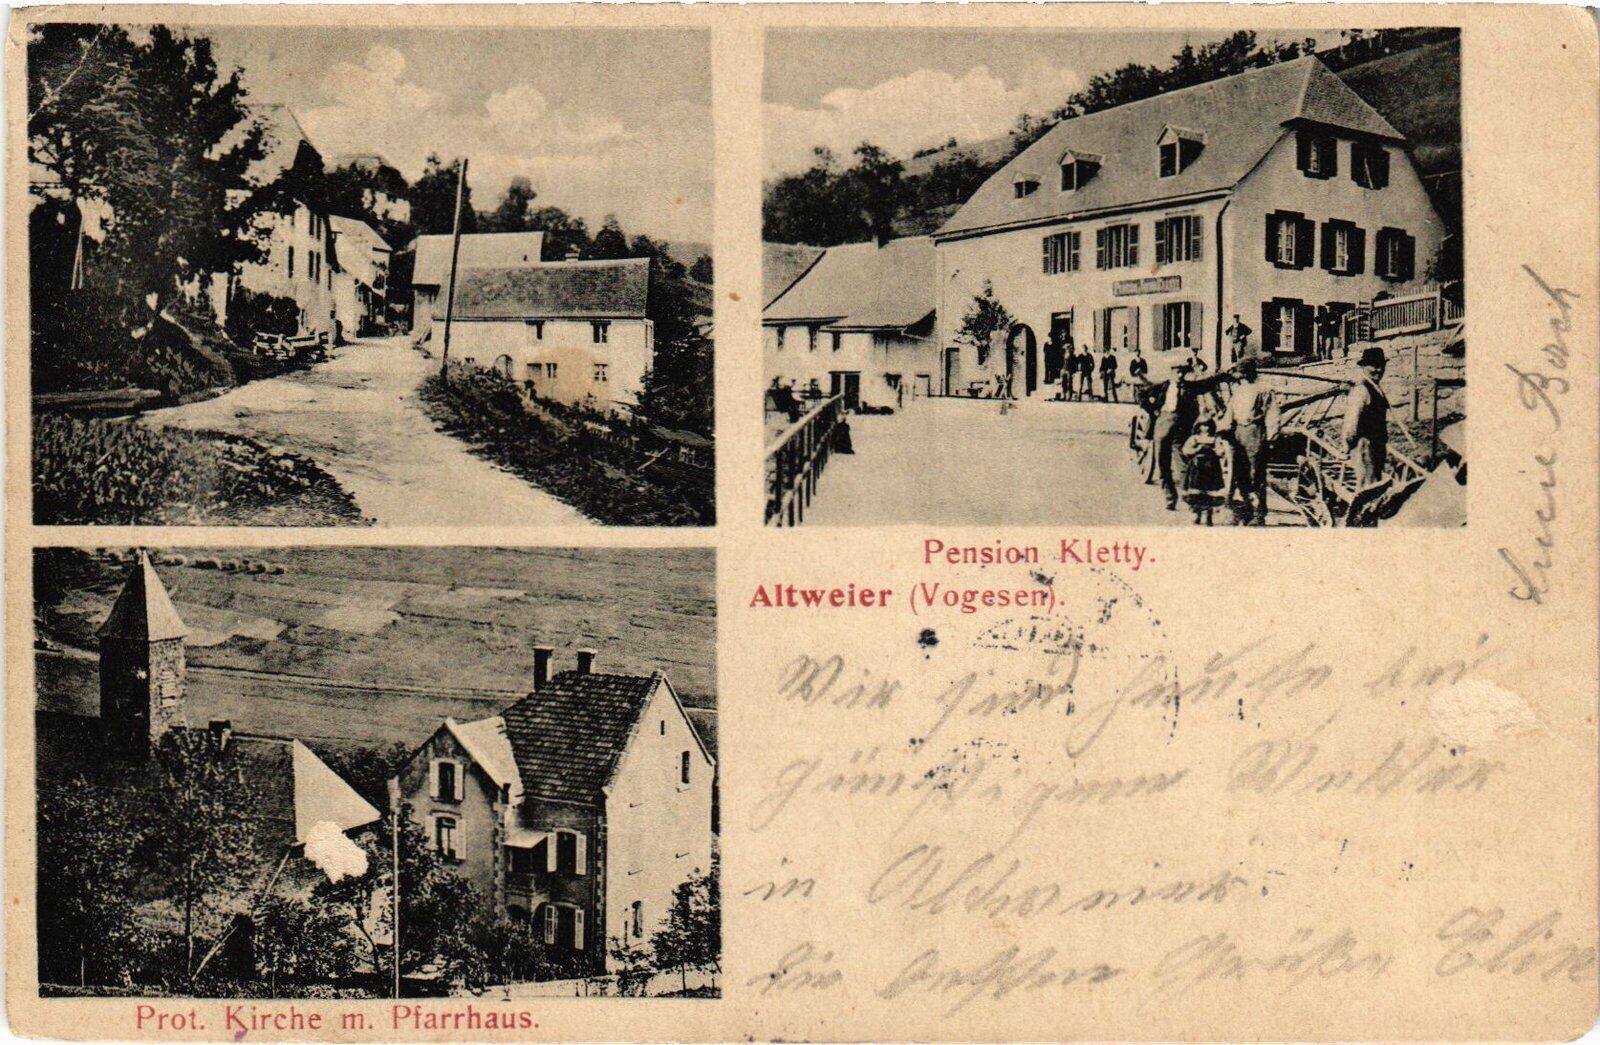 Pension Kletty.
Altweier (Vogesen).
Wir sind heute bei
günstigem Wetter
in Altweier.
die besten Grüße Elise
Lucie Bosch
Prot. Kirche m. Pfarrhaus.